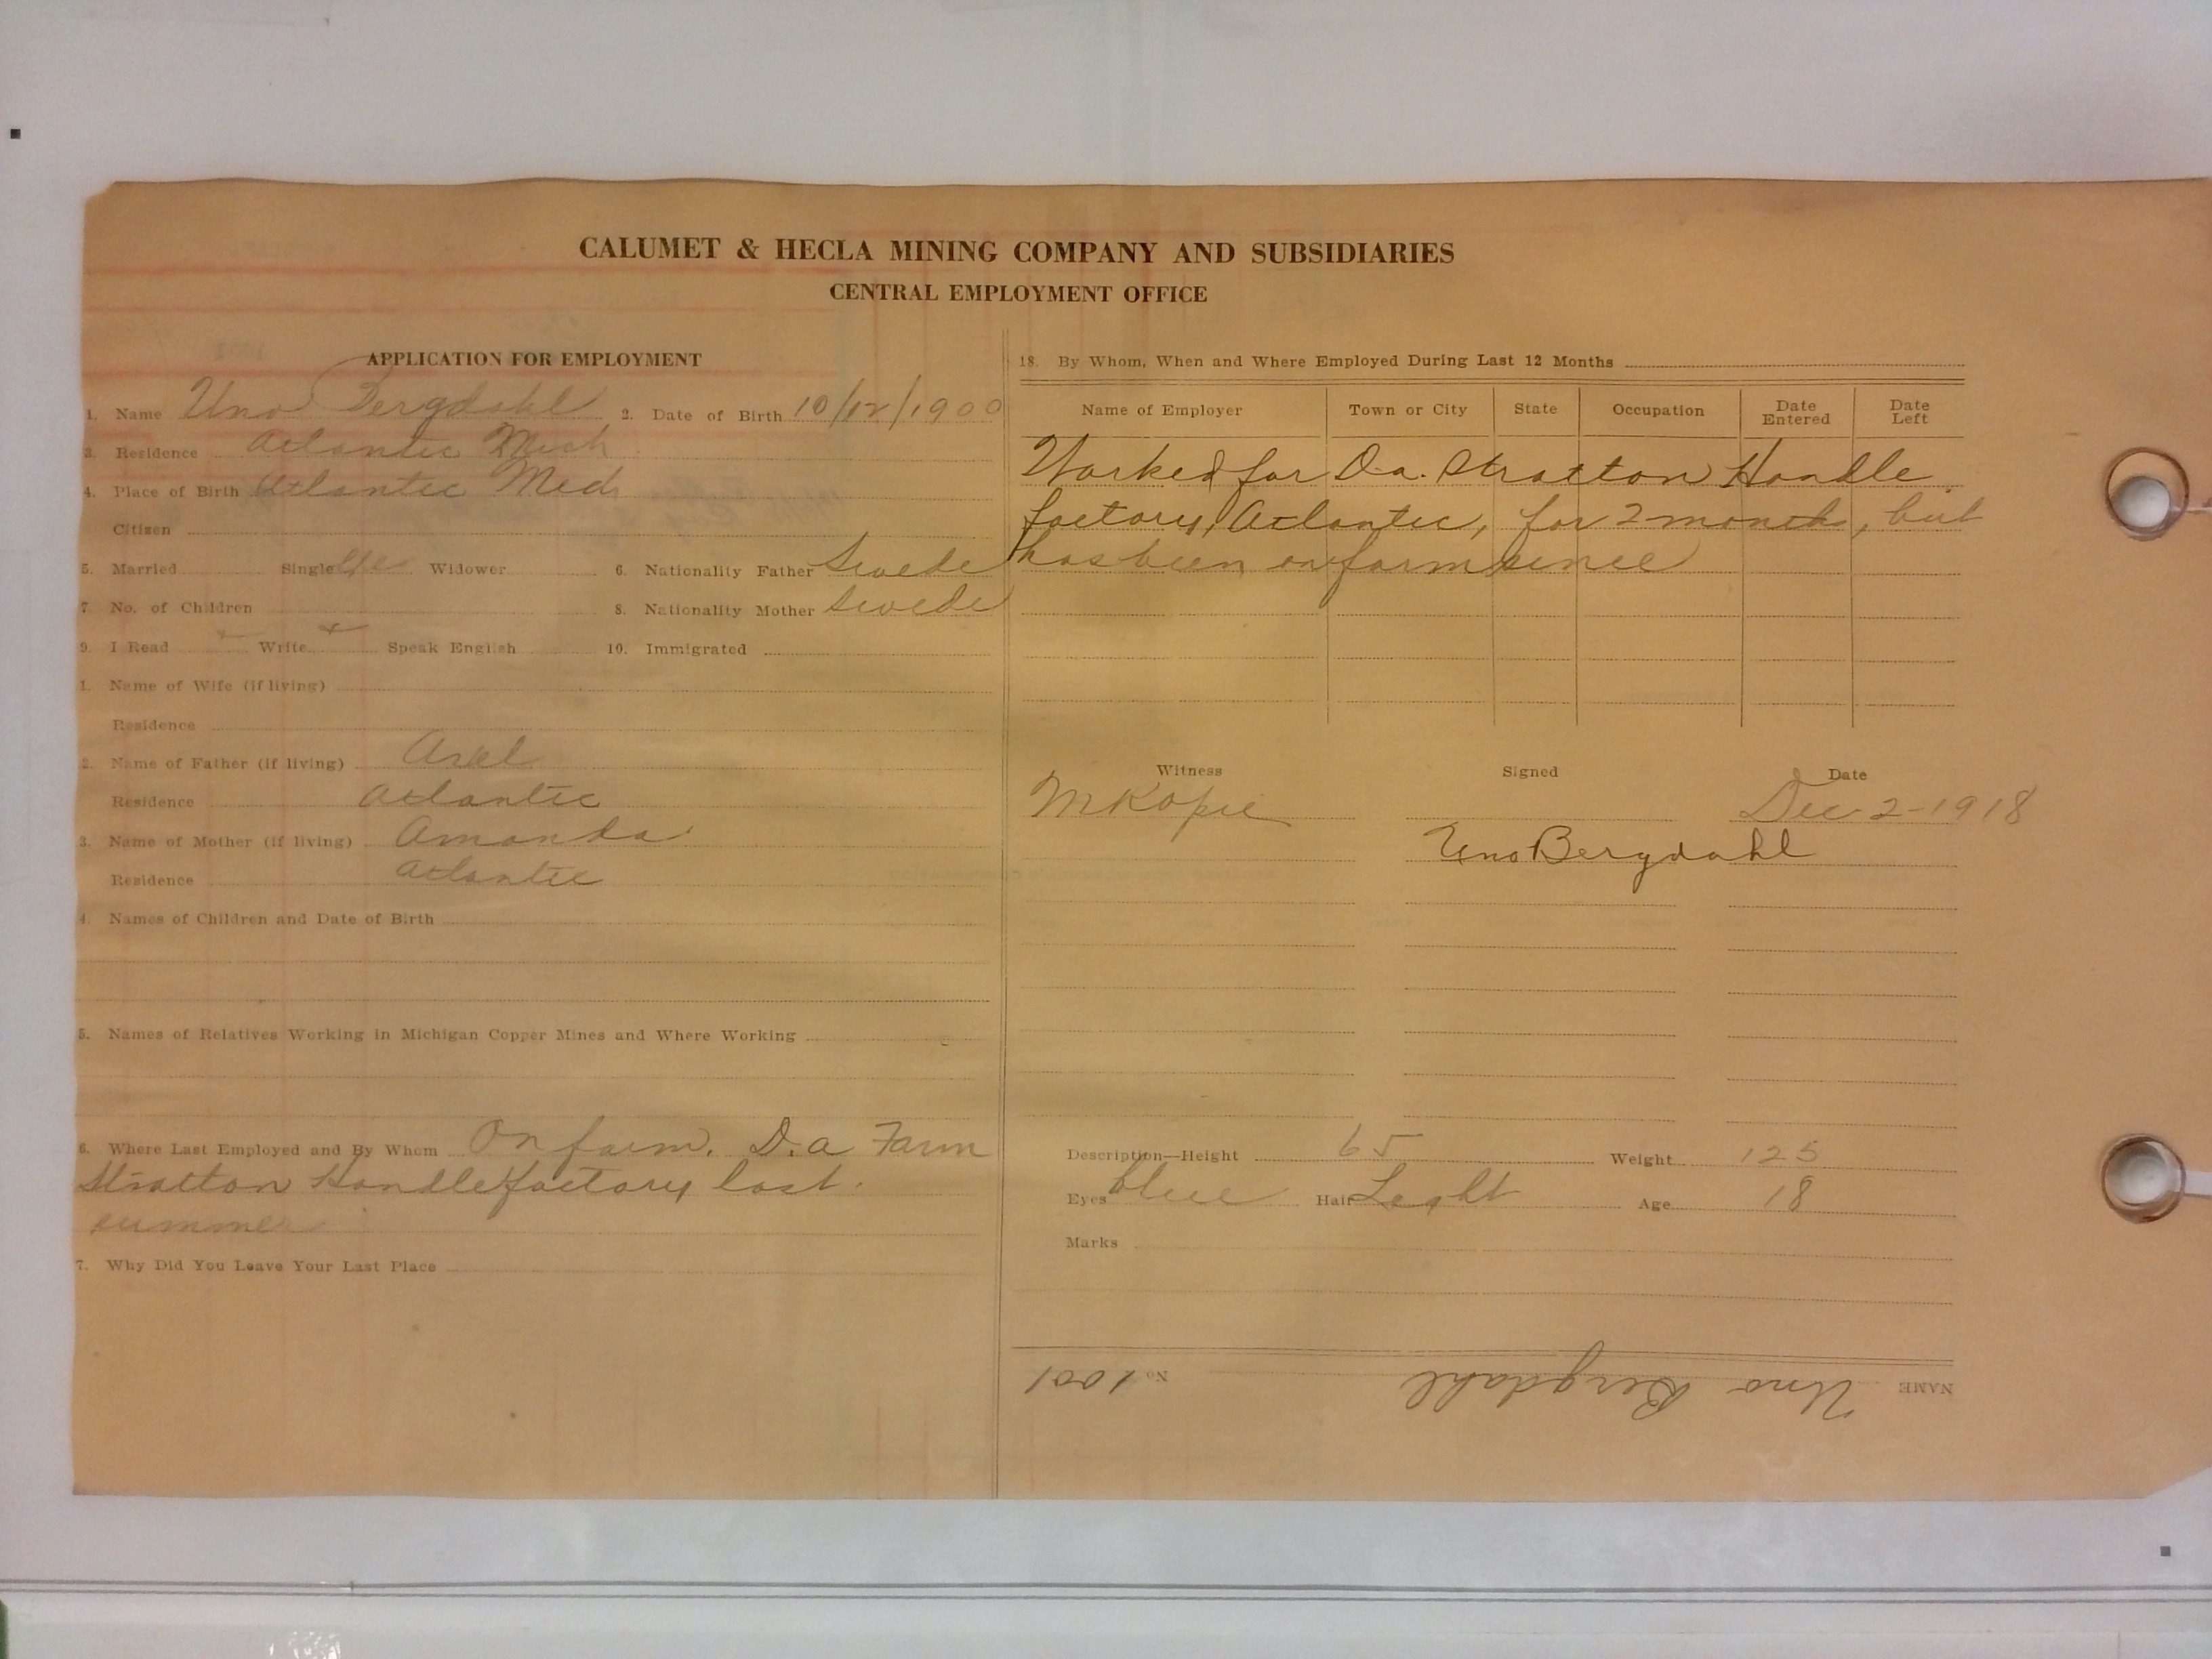 CALUMET & HECLA MINING COMPANY AND SUBSIDIARIES
CENTRAL EMPLOYMENT OFFICE
APPLICATION FOR EMPLOYMENT
1. Name Uno Bergdahl 2. Date of Birth 10/12/1900
3. Residence Atlantic Mich
4. Place of Birth Atlantic Mich
Citizen
5. Married Single yes Widower 6. Nationality Father Swede
7. No. of Children 8. Nationality Mother Swede
9. I Read Write Speak English 10. Immigrated
1. Name of Wife (if living)
Residence
2. Name of Father (if living) Axel
Residence Atlantic
3. Name of Mother (if living) Amanda
Residence Atlantic
4. Names of Children and Date of Birth
5. Names of Relatives Working in Michigan Copper Mines and Where Working
6. Where Last Employed and By Whom On farm. D.a Farm
Stratton Handle factory last
summer
7. Why Did You Leave Your Last Place
18. By Whom, When and Where Employed During Last 12 Months
Name of Employer Town or City State Occupation Date Entered Date Left
Worked for D.a. Stratton Handle
factory, Atlantic, for 2 months, but
has been on farm since
Witness Signed Date
Dec 2-1918
Uno Bergdahl
Description—Height 65 Weight 125
Eyes blue Hair Light Age 18
Marks
NAME Uno Bergdahl No 1001